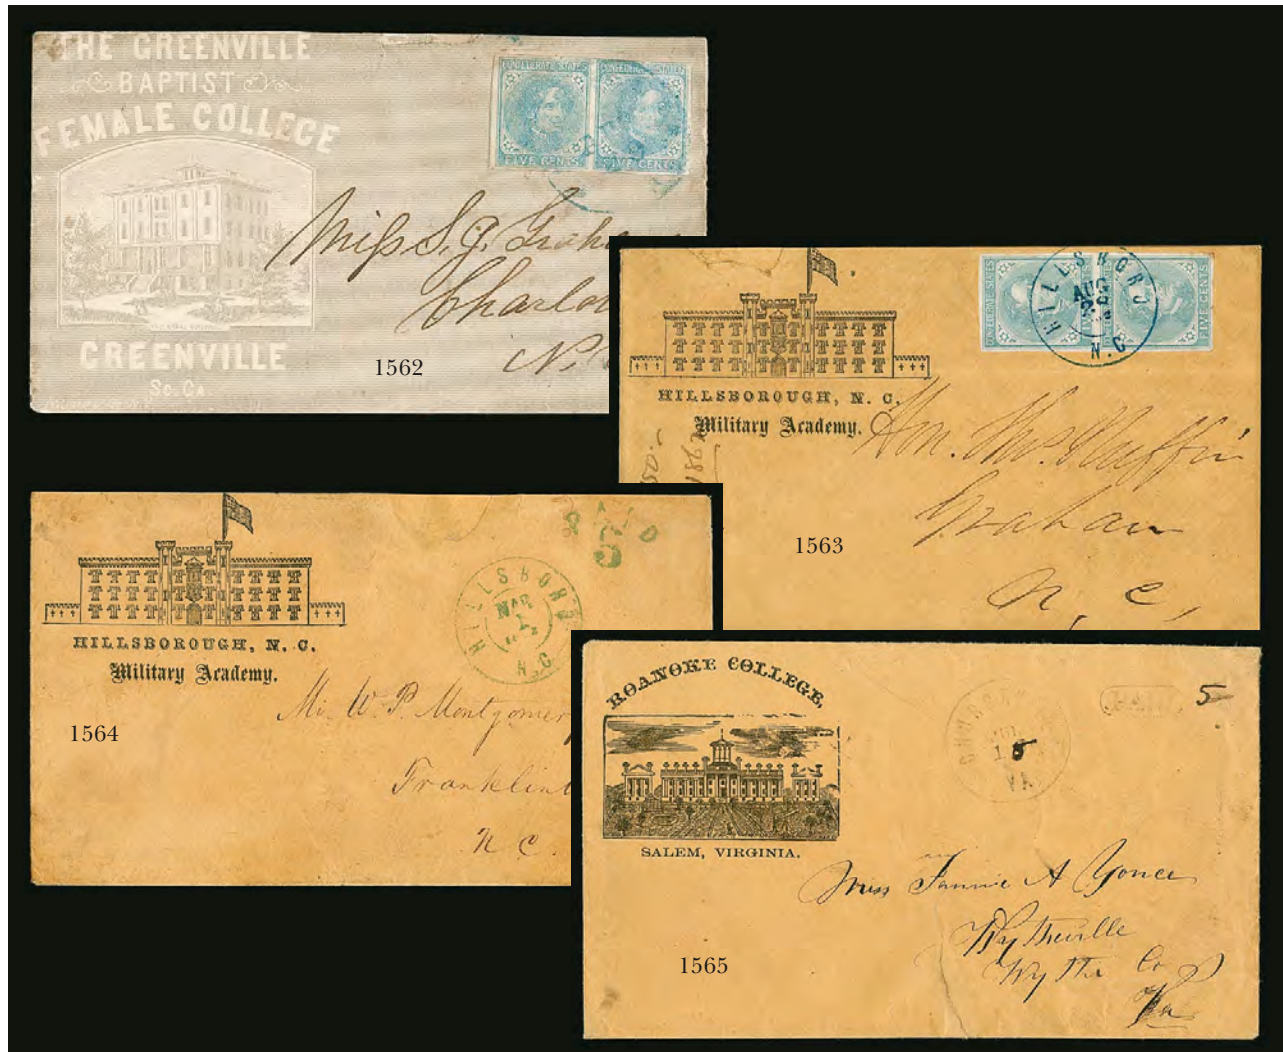 THE GREENVILLE
BAPTIST
FEMALE COLLEGE
GREENVILLE
So. Ca
CONFEDERATE STATES
FIVE CENTS
CONFEDERATE STATES
FIVE CENTS
Miss S. J. Graha
Charlo
N.
1562
HILLSBOROUGH, N. C.
Military Academy.
CONFEDERATE STATES
FIVE CENTS
HILLSBORO
AUG
N.C
Hon. Thos. Ruffin
Graham
N. C.
1862
1563
HILLSBOROUGH, N. C.
Military Academy.
HILLSBORO
MAR
1
N.C
PAID
5
Mr. W. P. Montgomery
Franklin
N C.
1564
ROANOKE COLLEGE,
SALEM, VIRGINIA.
VA.
PAID
5
Miss Fannie A Yonce
Wytheville
Wythe Co
Va
1565